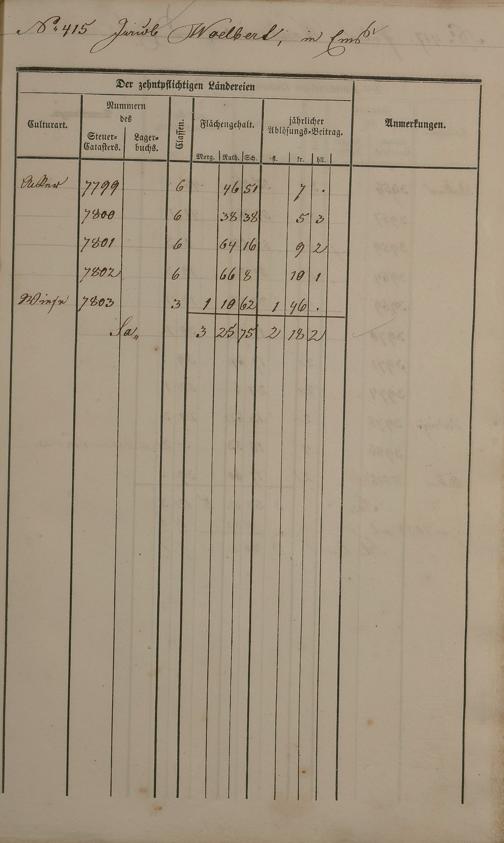 № 415 Jacob Woelbert, in Ems
Der zehntpflichtigen Ländereien
Culturart. Nummern des Steuer-Catasters. Lager-buchs. Classen. Flächengehalt. Morg. Ruth. Sch. jährlicher Ablösungs-Beitrag. fl. kr. hll. Anmerkungen.
Acker 7799 6 46 51 7 .
7800 6 38 38 5 3
7801 6 64 16 9 2
7802 6 66 8 10 1
Wiese 7803 3 1 10 62 1 46 .
Sa. 3 25 75 2 18 2